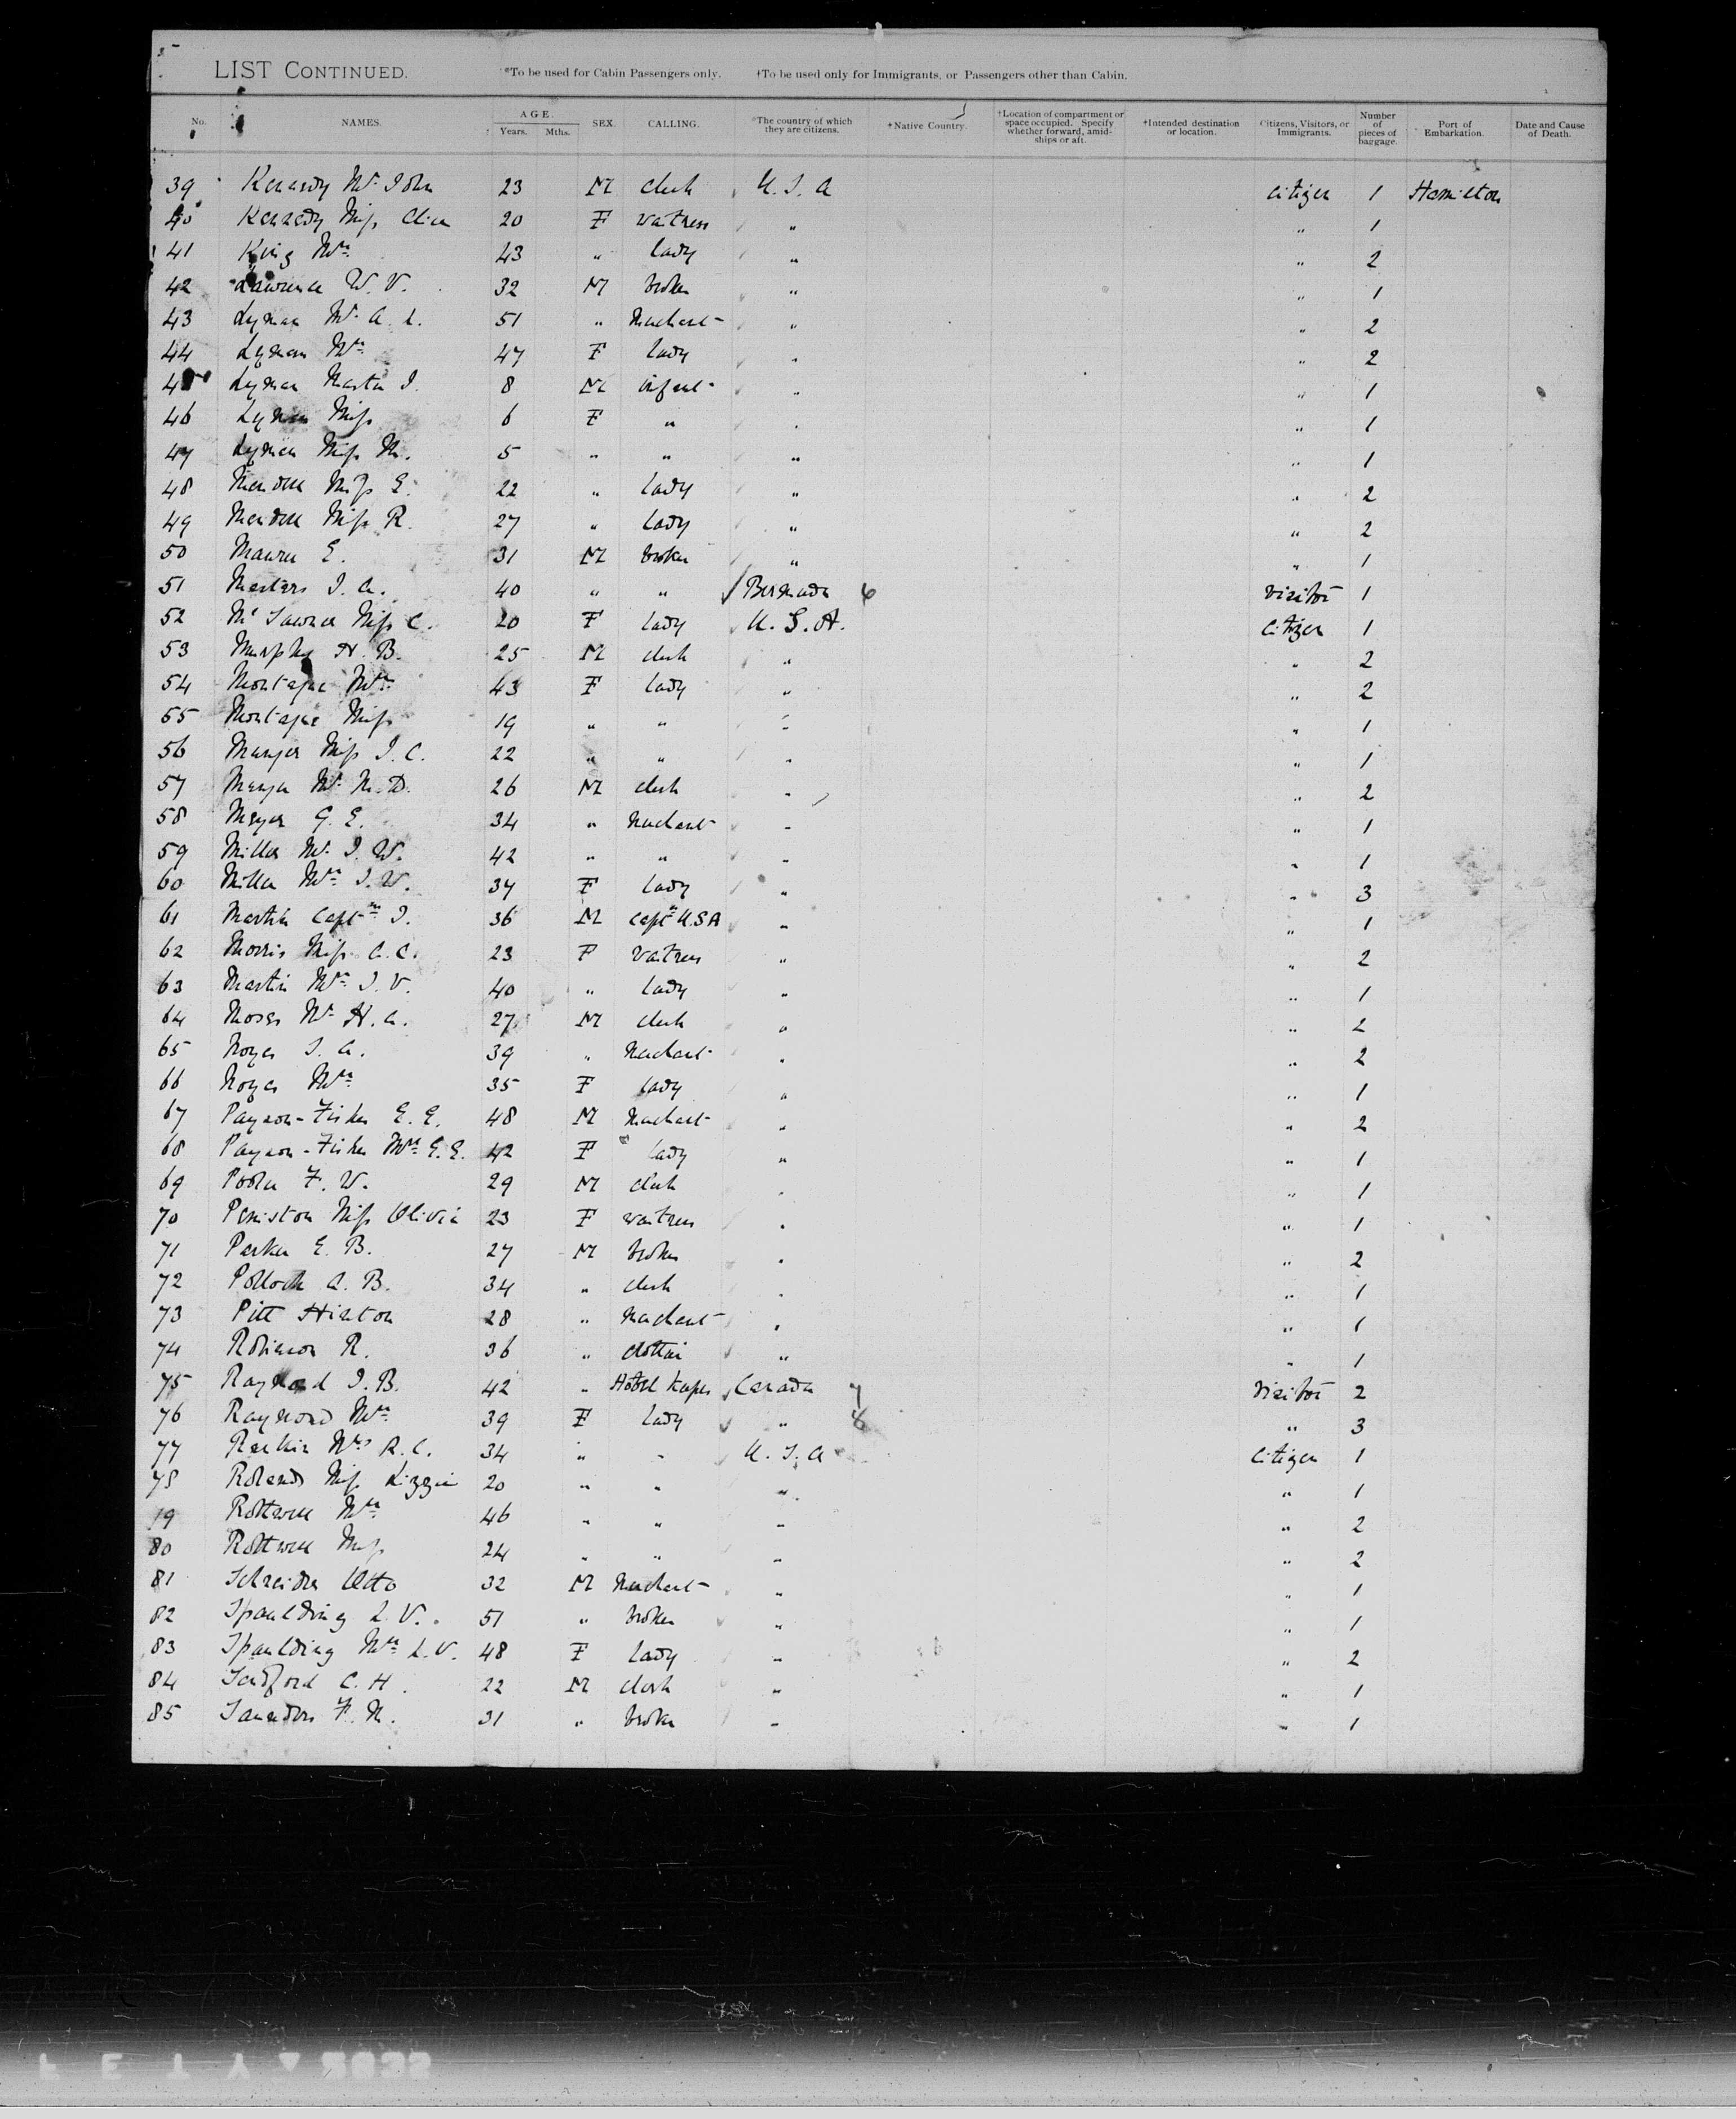 LIST CONTINUED. *To be used for Cabin Passengers only. †To be used only for Immigrants, or Passengers other than Cabin.
No. NAMES. AGE. Years. Mths. SEX. CALLING. *The country of which they are citizens. †Native Country. †Location of compartment or space occupied. Specify whether forward, amidships or aft. †Intended destination or location. Citizens, Visitors, or Immigrants. Number of pieces of baggage. Port of Embarkation. Date and Cause of Death.
39 Kennedy Mr. John 23 M clerk U. S. A citizen 1 Hamilton
40 Kennedy Miss 20 F waitress " " 1
41 King Mrs 43 " lady " " 2
42 Lawrence W. V. 32 M broker " " 1
43 Lyman Mr. A. L. 51 " Merchant " " 2
44 Lyman Mrs 47 F lady " " 2
45 Lyman Master J. 8 M infant " " 1
46 Lyman Miss 6 F " " " 1
47 Lyman Miss M. 5 " " " " 1
48 Mendell Miss E. 22 " lady " " 2
49 Mendell Miss R. 27 " lady " " 2
50 E. 31 M broker " " 1
51 Masters J. A. 40 " " Bermuda 6 visitor 1
52 Miss C. 20 F lady U. S. A. citizen 1
53 Murphy H. B. 25 M clerk " " 2
54 Montague Mrs 43 F lady " " 2
55 Montague Miss 19 " " " " 1
56 Munger Miss J. C. 22 " " " " 1
57 Munger Mr. M. D. 26 M clerk " " 2
58 Meyer G. E. 34 " Merchant " " 1
59 Miller Mr. J. W. 42 " " " " 1
60 Miller Mrs J. W. 34 F lady " " 3
61 Martin Captn J. 36 M Captn U.S.A " " 1
62 Morris Miss A. C. 23 F waitress " " 2
63 Martin Mrs J. V. 40 " lady " " 1
64 Moses Mr. H. A. 27 M clerk " " 2
65 Noyes J. A. 39 " Merchant " " 2
66 Noyes Mrs 35 F lady " " 1
67 Payson-Fisher E. E. 48 M Merchant " " 2
68 Payson-Fisher Mrs E. E. 42 F lady " " 1
69 Pooler F. W. 29 M clerk " " 1
70 Peniston Miss Olivia 23 F waitress " " 1
71 Parker E. B. 27 M broker " " 2
72 Pollock A. B. 34 " clerk " " 1
73 Pitt Hinton 28 " Merchant " " 1
74 Robinson R. 36 " " " 1
75 Raymond J. B. 42 " Hotel keeper Canada 7 visitor 2
76 Raymond Mrs 39 F lady " 8 " 3
77 Rankin Mrs R. C. 34 " " U. S. A citizen 1
78 Rolands Miss Lizzie 20 " " " " 1
79 Rothwell Mrs 46 " " " " 2
80 Rothwell Miss 24 " " " " 2
81 Schneider Otto 32 M Merchant " " 1
82 Spaulding L. V. 51 " broker " " 1
83 Spaulding Mrs L. V. 48 F lady " " 2
84 Sandford C. H. 22 M clerk " " 1
85 Saunders F. M. 31 " broker " " 1